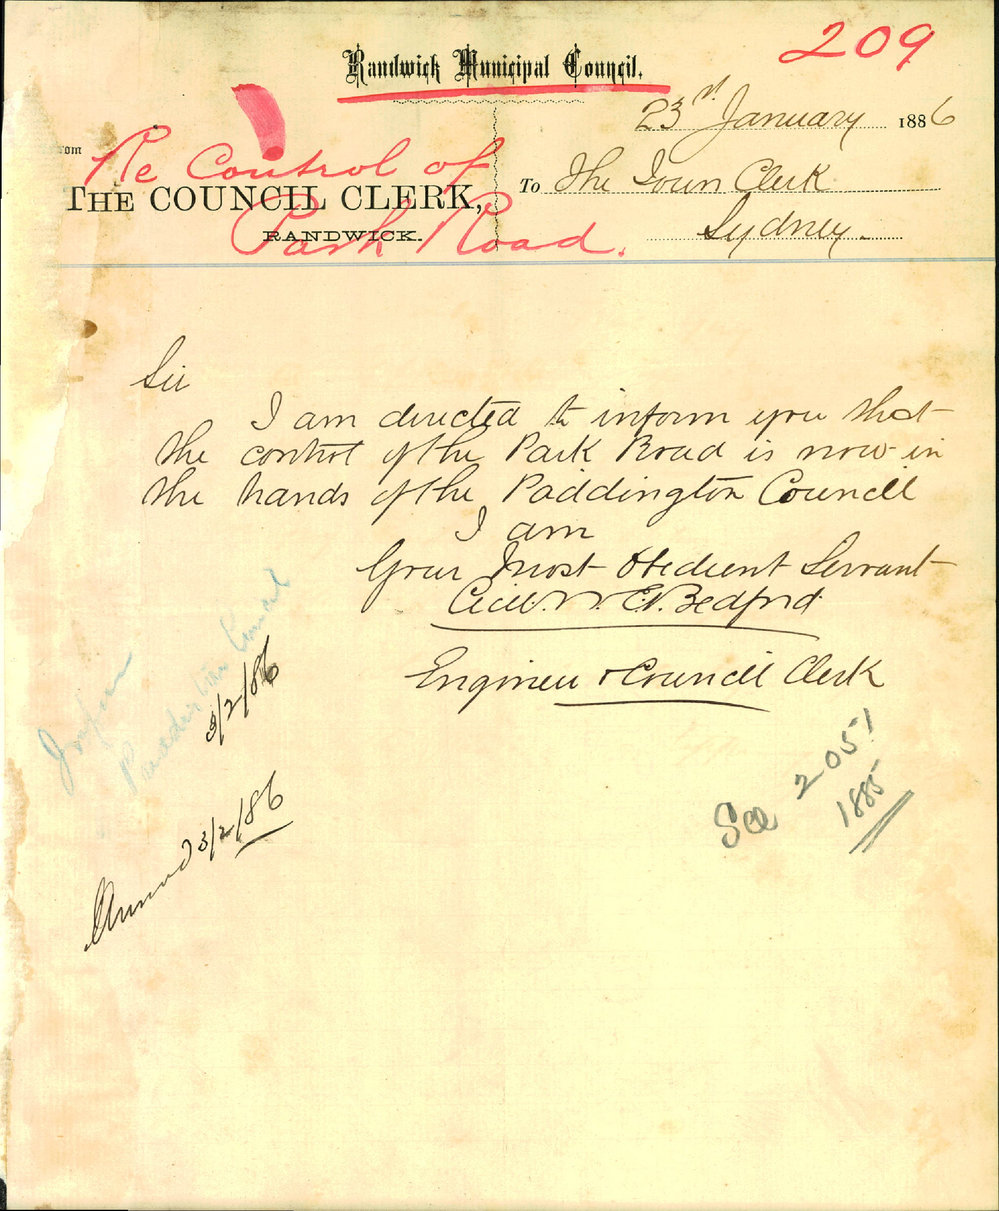 209
Randwick Municipal Council.
23rd January 1886
om
Re Control of
THE COUNCIL CLERK,
To The Town Clerk
Park Road.
RANDWICK.
Sydney.
Sir
I am directed to inform you that
the control of the Park Road is now in
the hands of the Paddington Council
I am
Your Most Obedient Servant
Cecil W. E. Bedford
Engineer & Council Clerk
Inform
Paddington Council
3/2/86
3/2/86
See 2051
1885